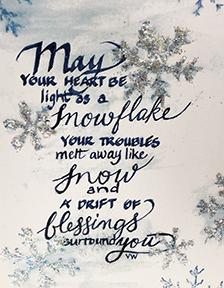 May
YOUR HEART BE
light as a
Snowflake
YOUR TROUBLES
melt away like
Snow
and
A DRIFT OF
blessings
surround you
VW